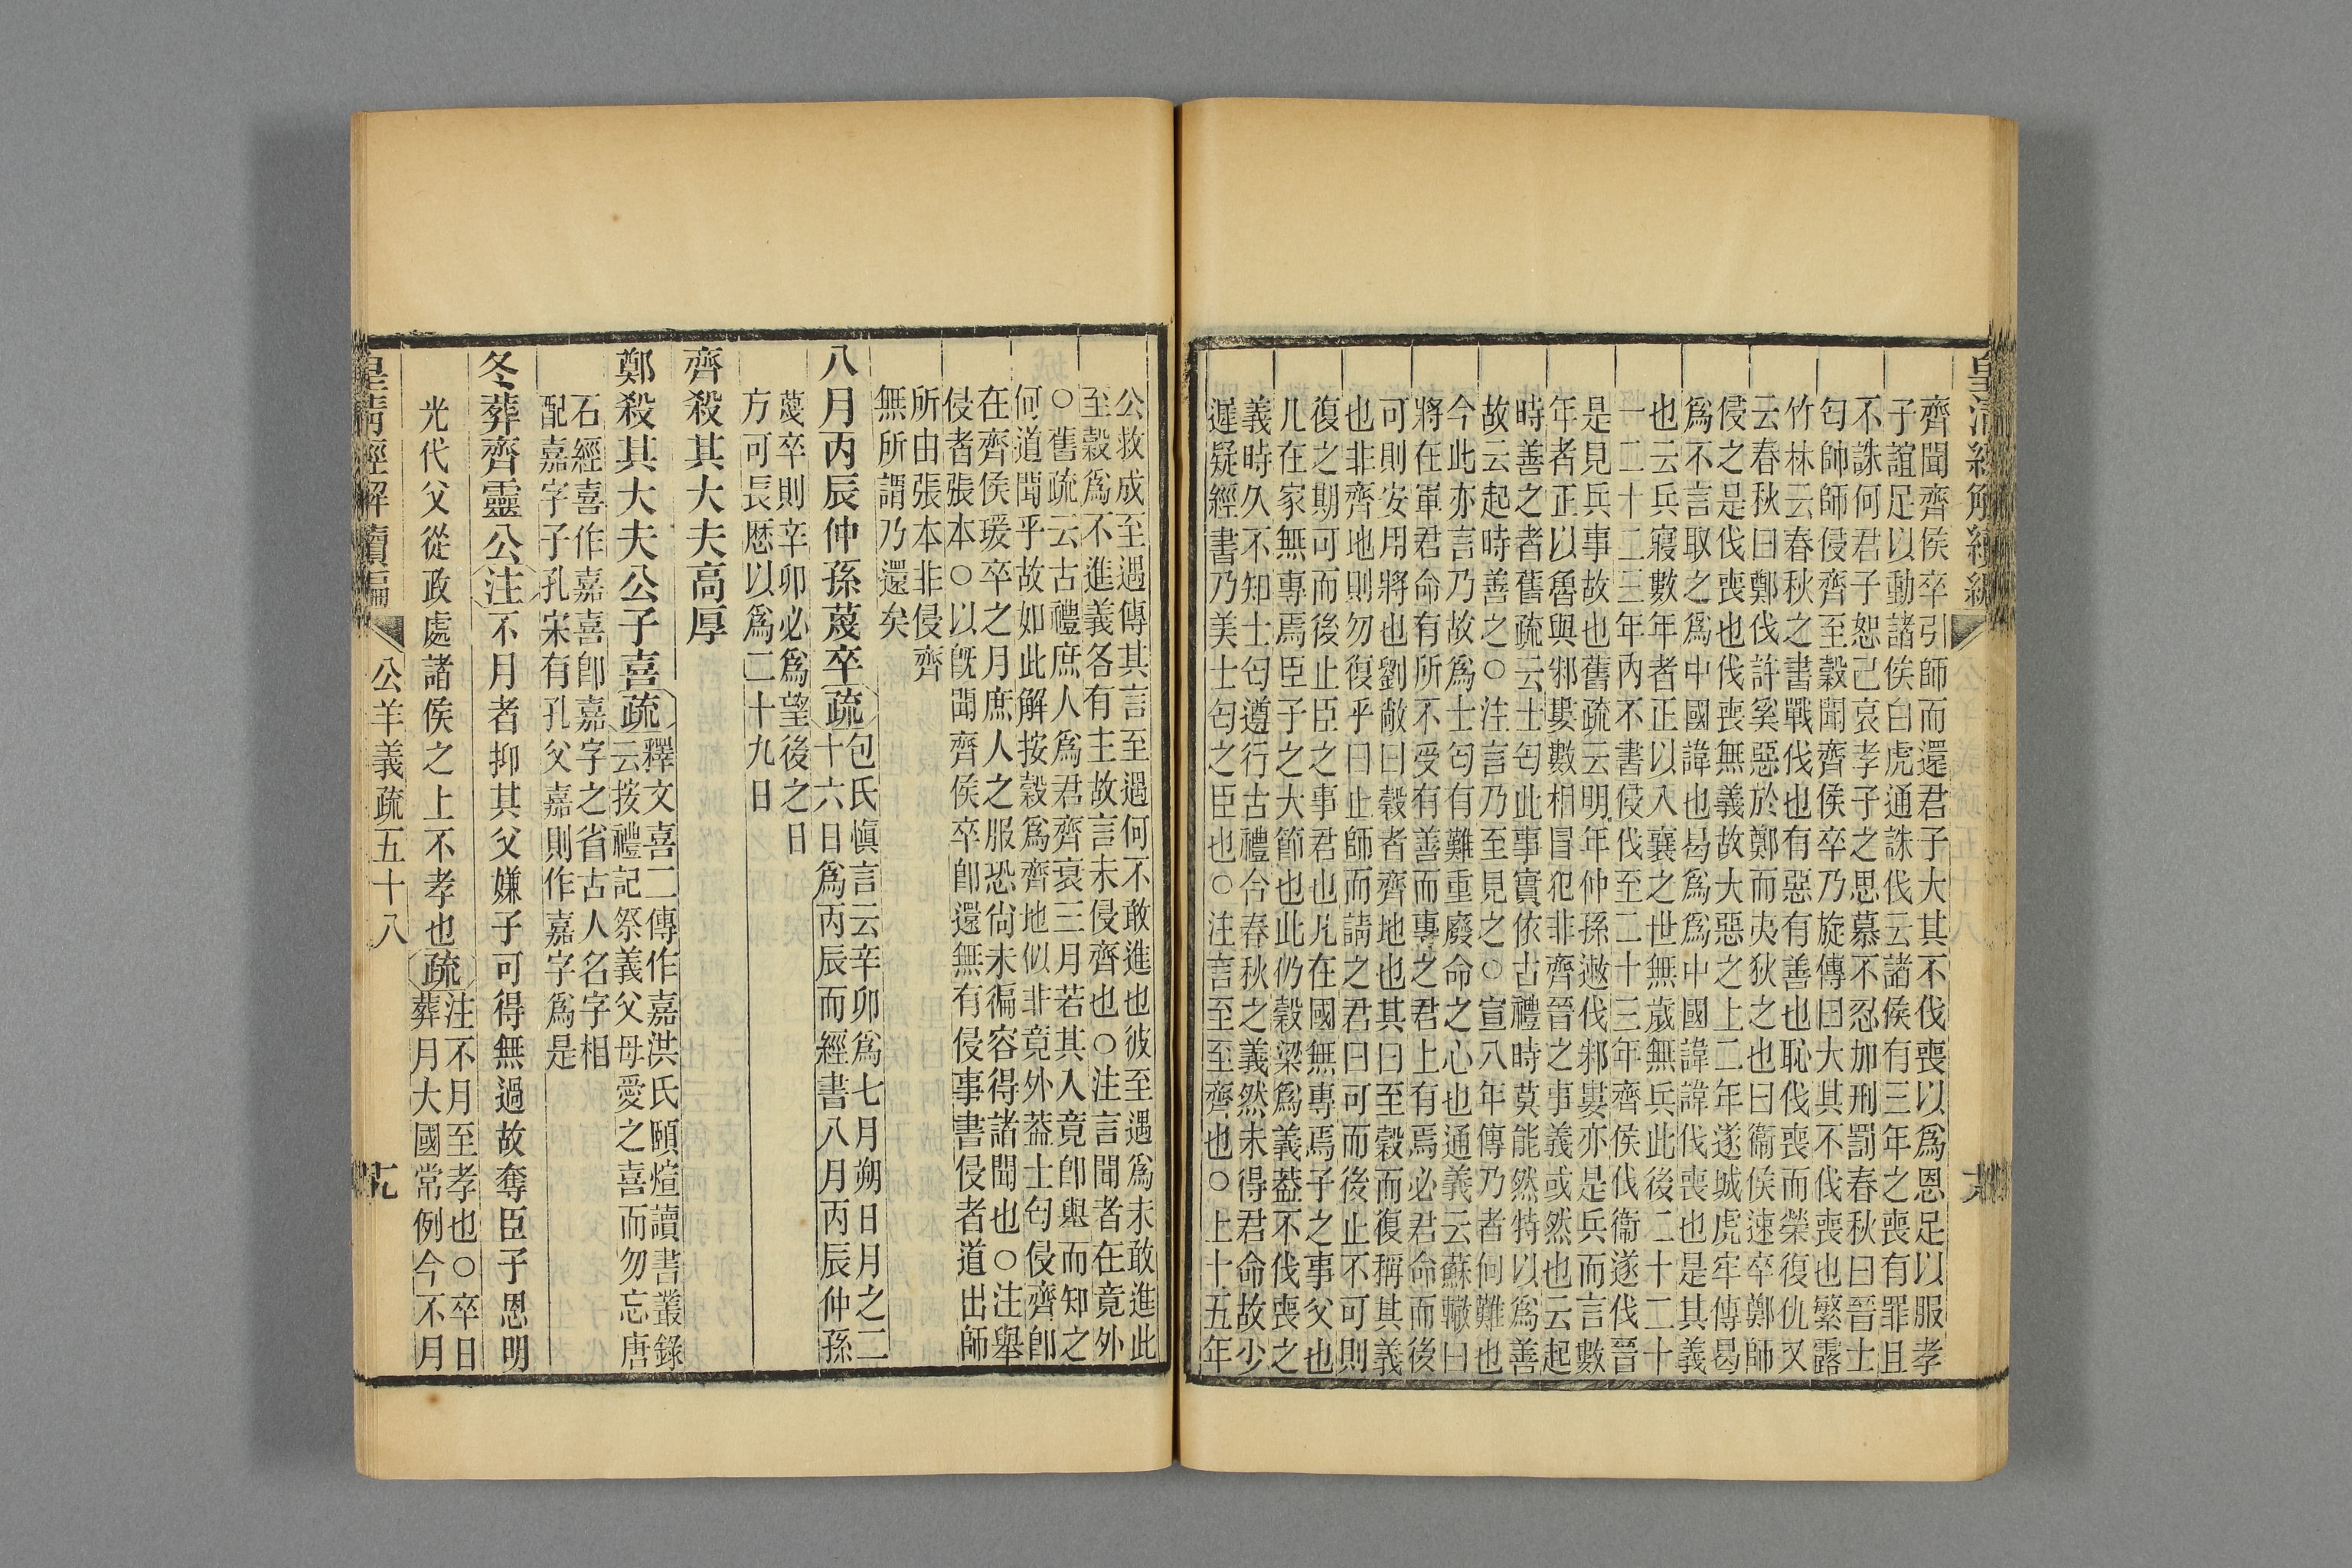 齊聞齊侯卒引師而還君子大其不伐喪以爲恩足以服孝
子誼足以動諸侯白虎通誅伐云諸侯有三年之喪有罪且
不誅何君子恕己哀孝子之思慕不忍加刑罰春秋曰晉士
匄帥師侵齊至穀聞齊侯卒乃旋傳曰大其不伐喪也繁露
竹林云春秋之書戰伐也有惡有善也恥伐喪而榮復仇又
云春秋曰鄭伐許奚惡於鄭而夷狄之也曰衞侯速卒鄭師
侵之是伐喪也伐喪無義故大惡之上二年遂城虎牢傳曷
爲不言取之爲中國諱也曷爲爲中國諱諱伐喪也是其義
也云兵寢數年者正以入襄之世無歲無兵此後二十二十
一二十二三年內不書侵伐至二十三年齊侯伐衞遂伐晉
是見兵事故也舊疏云明年仲孫遬伐邾婁亦是兵而言數
年者正以魯與邾婁數相冒犯非齊晉之事義或然也云起
時善之者舊疏云士匄此事實依古禮時莫能然特以爲善
故云起時善之○注言乃至見之○宣八年傳乃者何難也
今此亦言乃故爲士匄有難重廢命之心也通義云蘇轍曰
將在軍君命有所不受有善而專之君上有焉必君命而後
可則安用將也劉敞曰穀者齊地也其曰至穀而復稱其義
也非齊地則勿復乎曰止師而請之君曰可而後止不可則
復之期可而後止臣之事君也凡在國無專焉子之事父也
凡在家無專焉臣子之大節也此仍穀梁爲義葢不伐喪之
義時久不知士匄遵行古禮合春秋之義然未得君命故少
遲疑經書乃美士匄之臣也○注言至至齊也○上十五年
公救成至遇傳其言至遇何不敢進也彼至遇爲未敢進此
至穀爲不進義各有主故言未侵齊也○注言聞者在竟外
○舊疏云古禮庶人爲君齊衰三月若其人竟卽與而知之
何道聞乎故如此解按穀爲齊地似非竟外葢士匄侵齊卽
在齊侯瑗卒之月庶人之服恐尙未徧容得諸聞也○注舉
侵者張本○以旣聞齊侯卒卽還無有侵事書侵者道出師
所由張本非侵齊
無所謂乃還矣
八月丙辰仲孫蔑卒疏包氏愼言云辛卯爲七月朔日月之二
十六日爲丙辰而經書八月丙辰仲孫
蔑卒則辛卯必爲望後之日
方可長厯以爲二十九日
齊殺其大夫高厚
鄭殺其大夫公子喜疏釋文喜二傳作嘉洪氏頤煊讀書叢錄
云按禮記祭義父母愛之喜而勿忘唐
石經喜作嘉喜卽嘉字之省古人名字相
配嘉字子孔宋有孔父嘉則作嘉字爲是
冬葬齊靈公注不月者抑其父嫌子可得無過故奪臣子恩明
光代父從政處諸侯之上不孝也疏注不月至孝也○卒日
葬月大國常例今不月
皇清經解續編
公羊義疏五十八